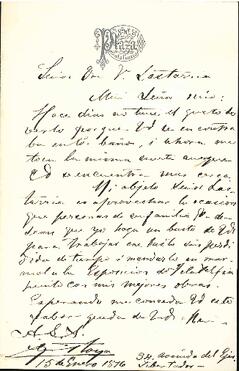 Plaza
Señor Don V. Lastarria
Mui Señor mio:
Hace dias no tuve el gusto de
verlo porque Ud se encontra
ba en los baños, i ahora me
toca la misma suerte
Ud se encuentra mas
Mi objeto Señor Las
tarria es aprovechar la ocasion
que personas de su familia
desean que yo haga un busto de Ud
para trabajar en
dida de tiempo i mandarlo en mar
mol a la Esposicion de Filadelfia
junto con mis mejores obras.
Esperando me conceda Ud este
quedo de Ud.
A. S. S.
15 de Enero 1876
34, avenida del Ejér
Libertador